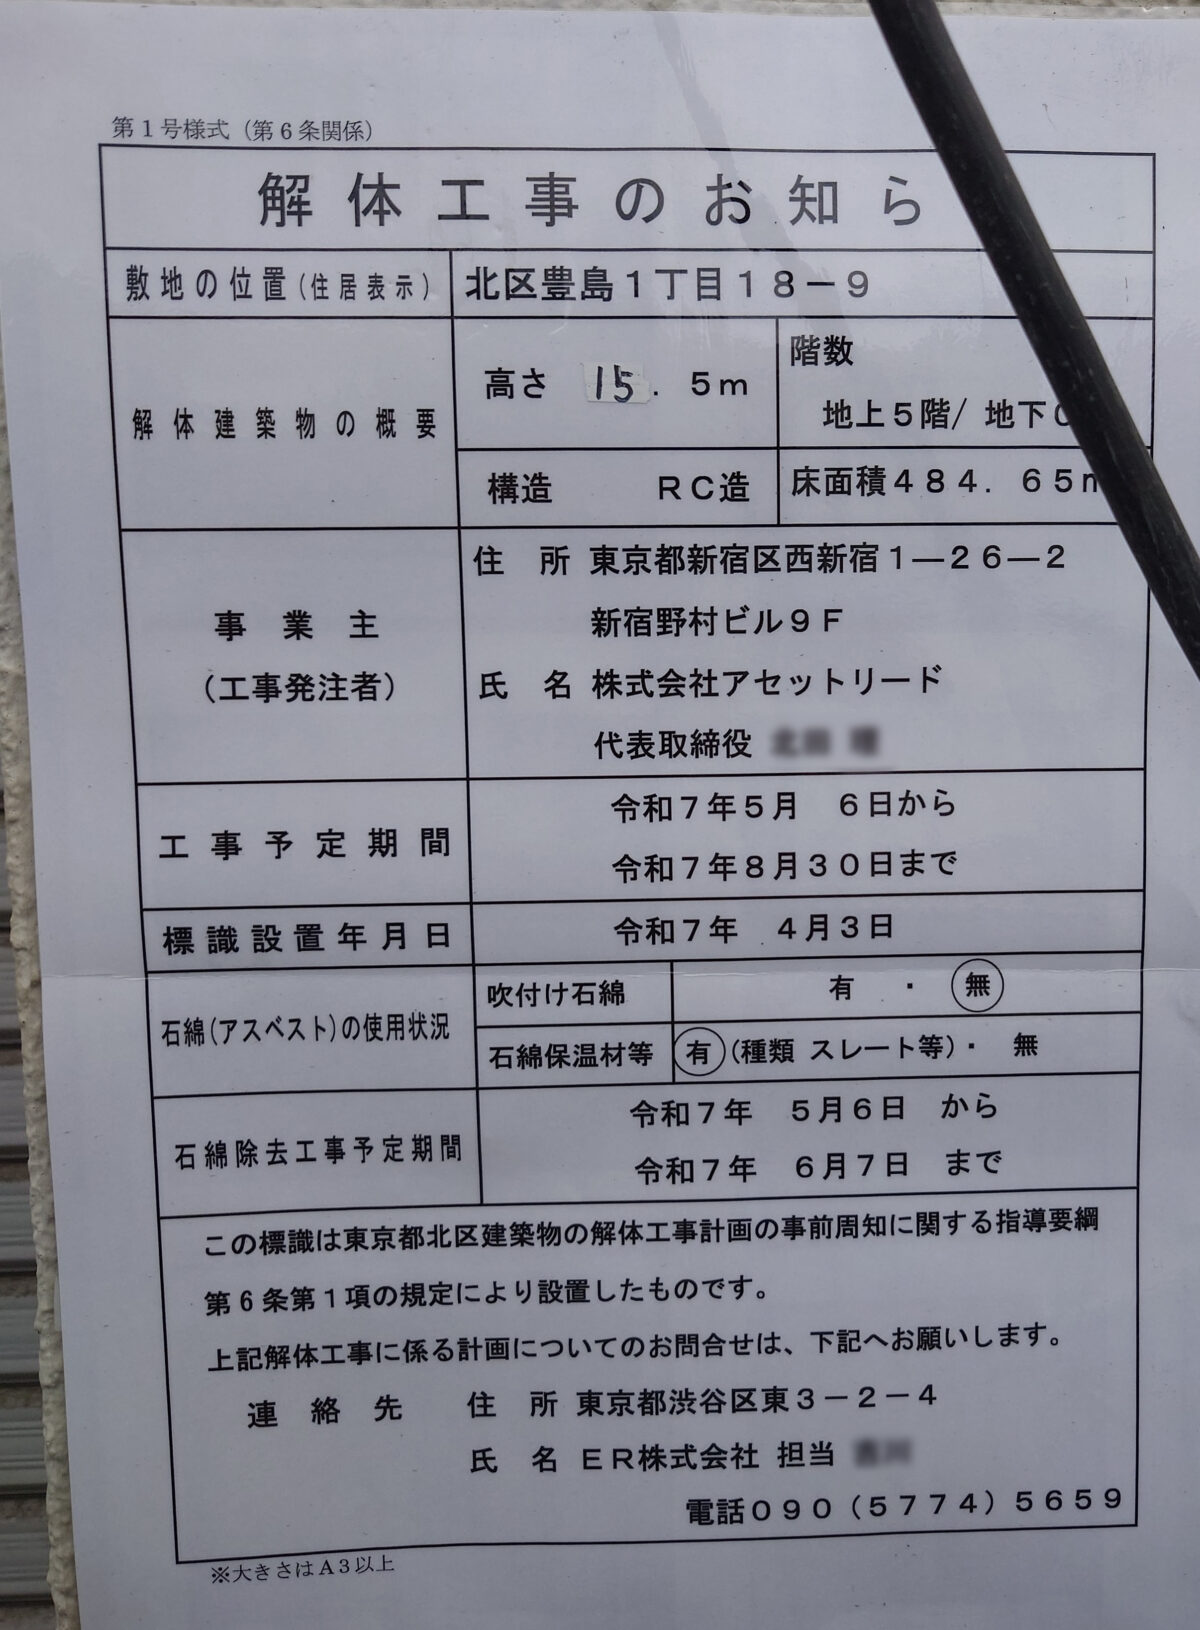 第1号様式（第6条関係）
解体工事のお知ら
敷地の位置(住居表示) 北区豊島1丁目18－9
解体建築物の概要
高さ 15．5m
階数
地上5階/ 地下
構造 RC造
床面積484．65
事業主
（工事発注者）
住 所 東京都新宿区西新宿1―26―2
新宿野村ビル9F
氏 名 株式会社アセットリード
代表取締役
工事予定期間
令和7年5月 6日から
令和7年8月30日まで
標識設置年月日 令和7年 4月3日
石綿(アスベスト)の使用状況
吹付け石綿 有 ・ 無
石綿保温材等 有 (種類 スレート等)・ 無
石綿除去工事予定期間
令和7年 5月6日 から
令和7年 6月7日 まで
この標識は東京都北区建築物の解体工事計画の事前周知に関する指導要綱
第6条第1項の規定により設置したものです。
上記解体工事に係る計画についてのお問合せは、下記へお願いします。
連絡先 住 所 東京都渋谷区東3－2－4
氏 名 ER株式会社 担当
電話090（5774）5659
※大きさはA3以上